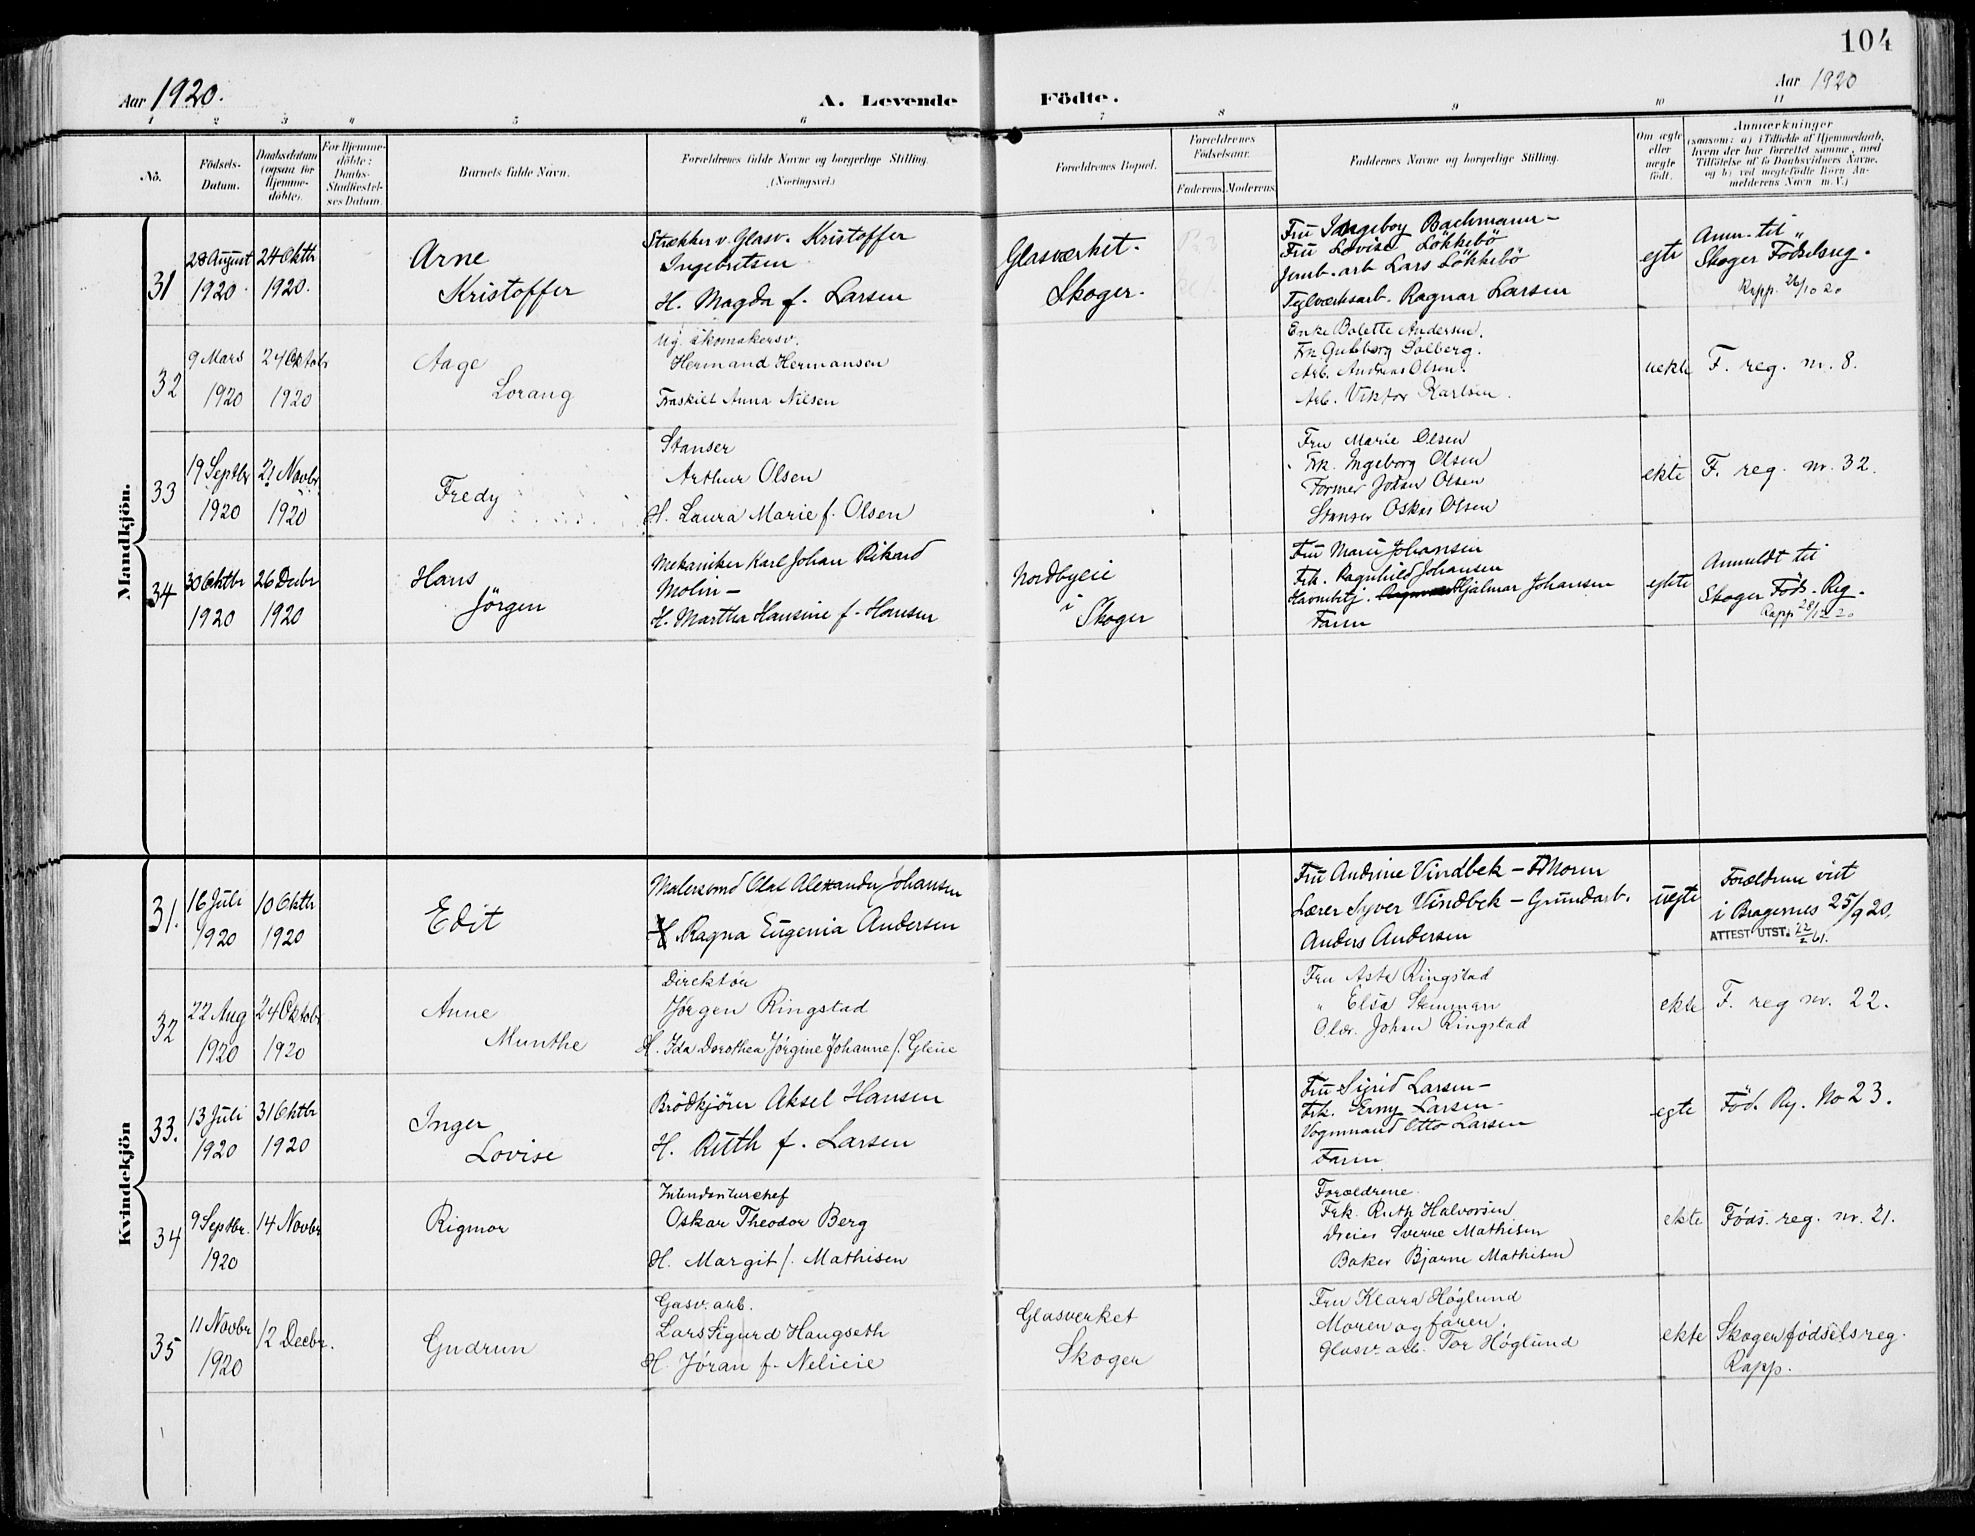 104
Aar 1920.
A. Levende Födte.
Aar 1920
1 2 3 4 5 6 7 8 9 10 11
No.
Födsels-Datum.
Daabsdatum (ogsaa for Hjemmedöbte).
For Hjemmedöbte: Daabs-Stadfæstelses Datum.
Barnets fulde Navn.
Forældrenes fulde Navne og borgerlige Stilling. (Næringsvei.)
Forældrenes Bopæl.
Forældrenes Födselsaar.
Faderens. Moderens.
Faddernes Navne og borgerlige Stilling.
Om ægte eller uægte födt.
Anmærkninger
(saasom: a) i Tilfælde af Hjemmedaab, hvem der har forrettet samme, med Tilföielse af to Daabsvidners Navne, og b) ved uægtefödte Börn Anmelderens Navn m. V.)
Mandkjön.
31
28 August 1920
24 Oktb 1920.
Arne
Kristoffer
Strækker v. Glasv. Kristoffer
Ingebretsen
H. Magda f. Larsen
Glasværket.
Skoger.
Fru Ingeborg Bachmann –
Fru Lovise Lökkebö
Jernb. arb Lars Lökkebö
Ragnar Larsen
egte
Anm. til
Skoger Födselsreg.
Rapp. 26/10 20
32
9 Mars 1920
24 Oktobr 1920
Aage
Lorang
Ug. skomakersv.
Hermand Hermansen
Fraskilt Anna Nilsen
Enke Bolette Andersen.
Frk. Gubborg Solberg.
Arb. Andreas Olsen.
Arb. Viktor Karlsen.
uekte
F. reg. nr. 8.
33
19 Septbr 1920
21 Novbr. 1920
Fredy
Stanser
Arthur Olsen
H. Laura Marie f. Olsen
Fru Marie Olsen
Frk. Ingeborg Olsen
Former Johan Olsen
Stanser Oskar Olsen
ekte
F. reg. nr. 32.
34
30 Oktbr 1920
26 Decbr 1920
Hans
Jörgen
Mekaniker Karl Johan Rikard
Molin –
H. Martha Hansine f. Hansen
Nordbyeie
i
Skoger
Fru Marie Johansen
Frk. Ragnhild Johansen
Havnebetj. Hjalmar Johansen
Faren
egte
Anmeldt til
Skoger Föds. Reg.
Rapp 28/12 20
Kvindekjön
31.
16 Juli 1920
10 Oktb 1920
Edit
Malersvend Olaf Alexander Johansen
Ragna Eugenia Andersen
Fru Andrine Vindbek – Moren
Lærer Syver Vindbek – Grundarb.
Anders Andersen
uegte
Forældrene viet
i Bragernes 25/9 20.
ATTEST UTST. 22/2 61.
32
22 Aug 1920
24 Oktobr 1920
Anne
Munthe
Direktör
Jörgen Ringstad
H. Ida Dorothea Jörgine Johanne f. Gleue
Fru Asta Ringstad
" Elsa Steinman
Johan Ringstad
ekte
F. reg nr. 22.
33.
13 Juli 1920
31 Oktbr 1920
Inger
Lovise
Brödkjörer Aksel Hansen
H. Ruth f. Larsen
Fru Sigrid Larsen –
Frk. Jenny Larsen –
Vognmand Otto Larsen
Faren
egte
Föd. Rg. No 23.
34
9 Septbr. 1920
14 Novbr
Rigmor
Intendanturchef
Oskar Theodor Berg
H. Margit f. Mathisen
Forældrene.
Frk. Ruth Halvorsen
Dreier Sverre Mathisen
Baker Bjarne Mathisen
ekte
Föds. reg. nr. 21.
35
11 Novbr 1920
12 Decbr.
Gudrun
Gasv. arb.
Lars Sigurd Haugseth
H. Jöran f. Nelieie
Glasverket
Skoger
Fru Klara Höglund
Moren og faren.
Glasv. arb. Tor Höglund
ekte
Skoger födselsreg.
Rapp.